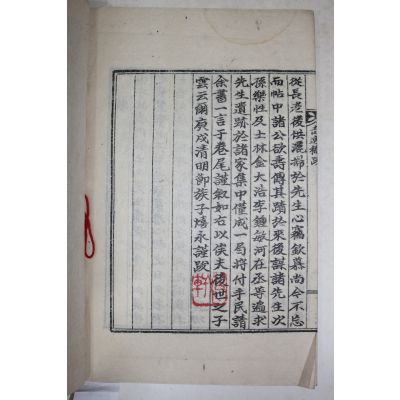 從長老後烘灑掃於先生心竊欽慕尚今不忘
而帖中諸公欲壽傳其蹟於來後謀諸先生次
孫樂性及士林金大浩李鍾敏河在丞等遍求
先生遺跡於諸家集中僅成一局將付手民請
余書一言于卷尾謹叙如右以俟夫後世之子
雲云爾庚戌清明節族子熺永謹跋